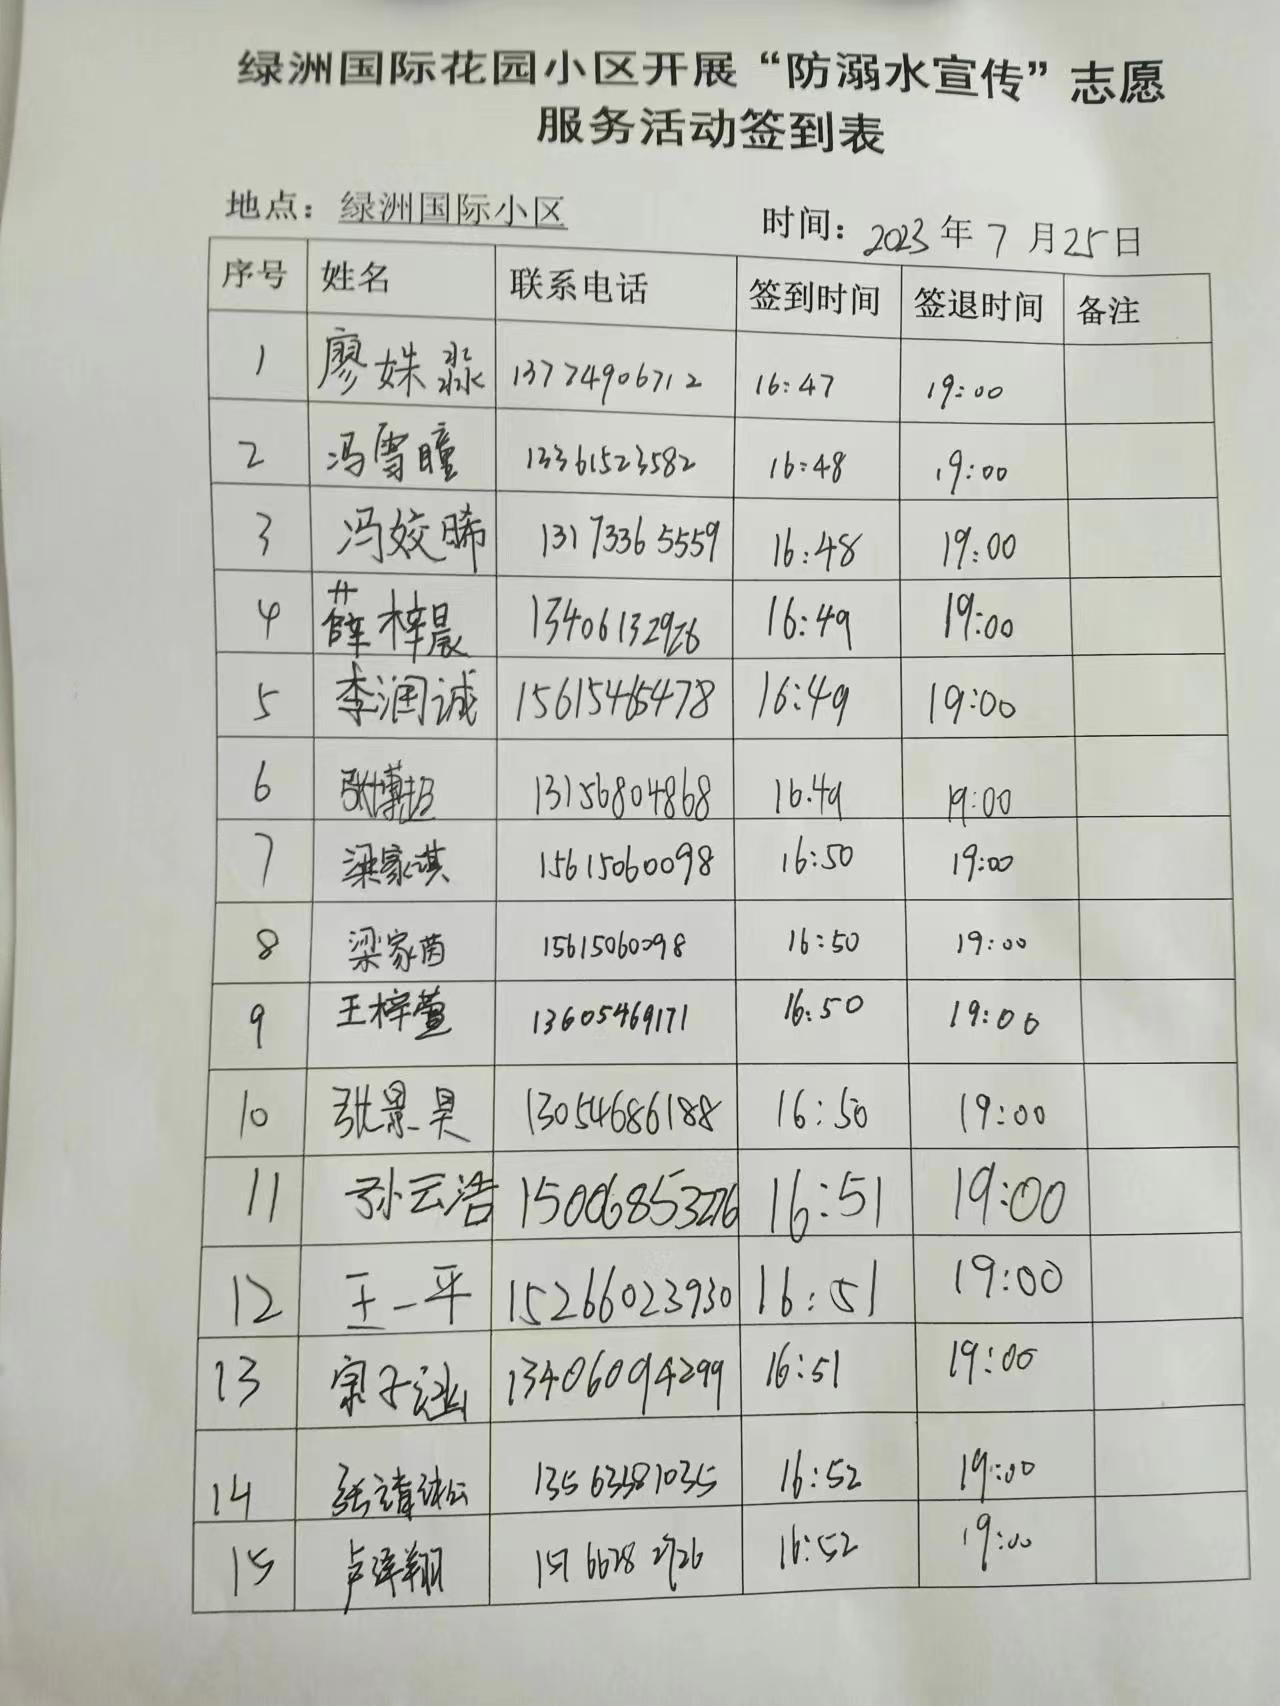 绿洲国际花园小区开展“防溺水宣传”志愿
服务活动签到表
地点：绿洲国际小区 时间：2023年7月25日
序号 姓名 联系电话 签到时间 签退时间 备注
1 廖姝淼 13774906712 16:47 19:00
2 冯雪瞳 13361523582 16:48 19:00
3 冯姣晞 13173365559 16:48 19:00
4 薛梓晨 13406132926 16:49 19:00
5 李润诚 15615465478 16:49 19:00
6 张博超 13156804868 16.49 19:00
7 梁家淇 15615060098 16:50 19:00
8 梁家茵 15615060098 16:50 19:00
9 王梓萱 13605469171 16:50 19:00
10 张景昊 13054686188 16:50 19:00
11 孙云浩 15006853276 16:51 19:00
12 王一平 15266023930 16:51 19:00
13 宗子涵 13406094299 16:51 19:00
14 张 13563381035 16:52 19:00
15 卢泽翔 16:52 19:00